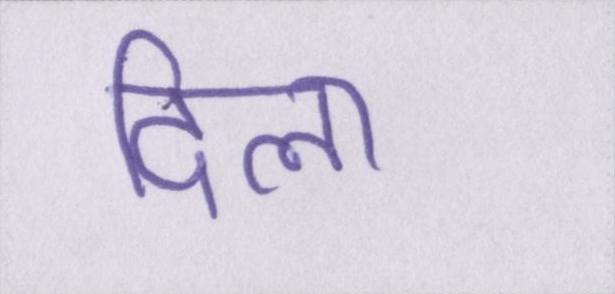 दिला